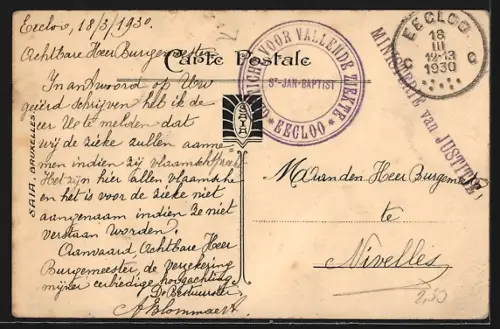 Eecloo, 18/3/1930.
Achtbare Heer Burgemeester
In antwoord op Uw
geëerd schrijven heb ik de
eer U te melden dat
wij de zieke zullen aanne-
men indien zij vlaamsch spreekt.
Het zijn hier allen vlaamsche
en het is voor de zieke niet
aangenaam indien ze niet
verstaan worden.
Aanvaard Achtbare Heer
Burgemeester, de verzekering
mijner eerbiedige hoogachting.
De Bestuurster
A Blommaert
SAIA, BRUXELLES
Carte Postale
SAIA
VOOR VALLENDE ZIEKTE
St-JAN-BAPTIST
* EECLOO *
EECLOO
18
III
12-13
1930
C C
MINISTERIE van JUSTITIE
M. aan den Heer Burgemeester,
te
Nivelles
250